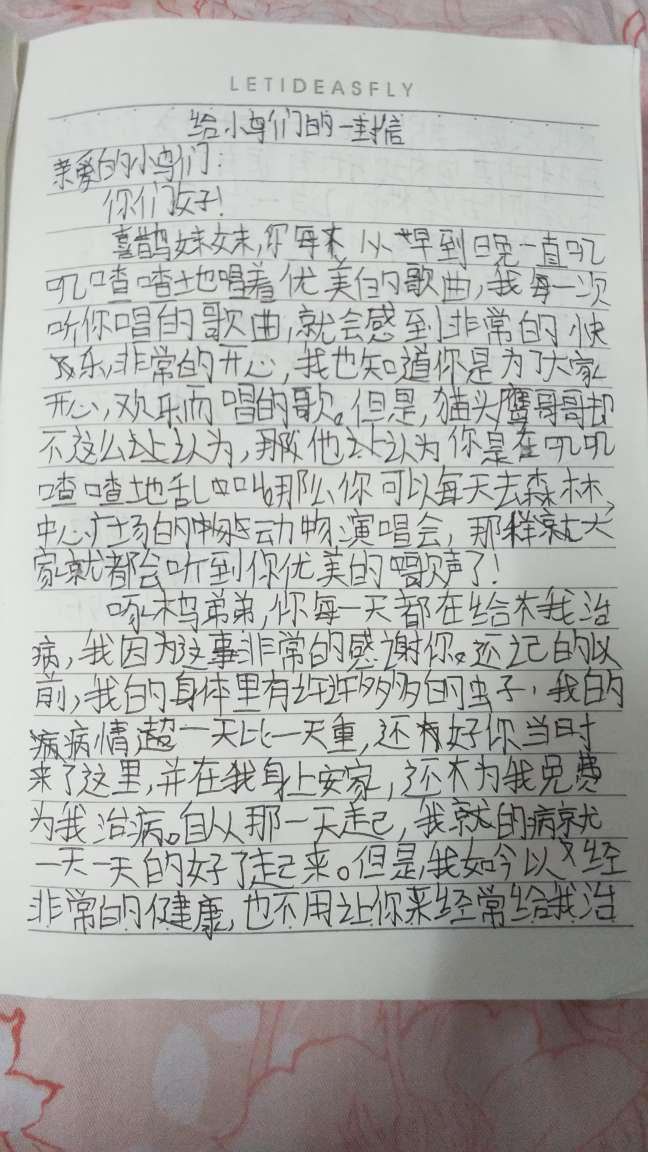 LETIDEASFLY
给小鸟们的一封信
亲爱的小鸟们:
你们好!
喜鹊妹妹,你每天从早到晚一直叽
叽喳喳地唱着优美的歌曲,我每一次
听你唱的歌曲,就会感到非常的快
乐,非常的开心,我也知道你是为了大家
开心,欢乐而唱的歌。但是,猫头鹰哥哥却
不这么认为,他认为你是在叽叽
喳喳地乱叫,那么你可以每天去森林
中心广场的动物演唱会,那样大
家就都会听到你优美的歌声了!
啄木鸟弟弟,你每一天都在给我治
病,我因为这事非常的感谢你。还记的以
前,我的身体里有许许多多的虫子,我的
病情一天比一天重,还好你当时
来了这里,并在我身上安家,还免费
为我治病。自从那一天起,我的病就
一天一天的好了起来。但是,我如今以经
非常的健康,也不用让你来经常给我治